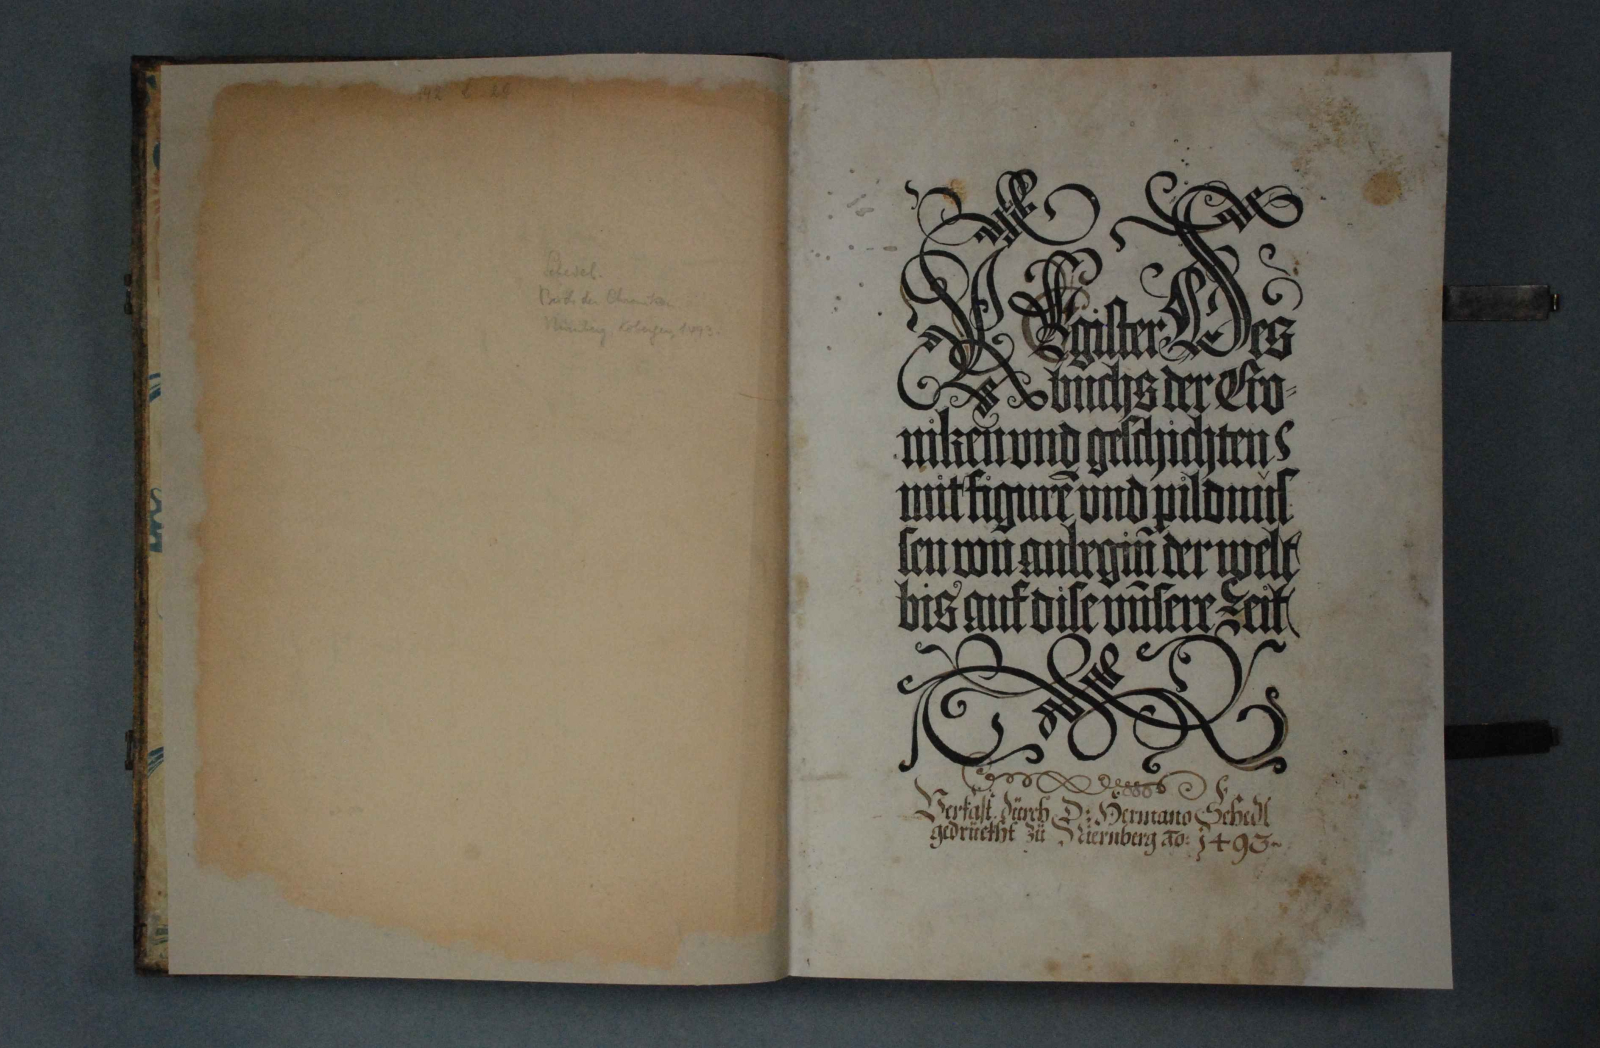 Schedel.
Buch der Chroniken
Nürnberg, Koberger, 1493.
REgister Des
buchs der Cro-
niken und geschichten
mit figurē und pildnus
sen von anbegiñ der welt
bis auf dise vñsere Zeit
Verfast. dürch D: Hermano Schedl
gedrückht zü Niernberg ão: 1493